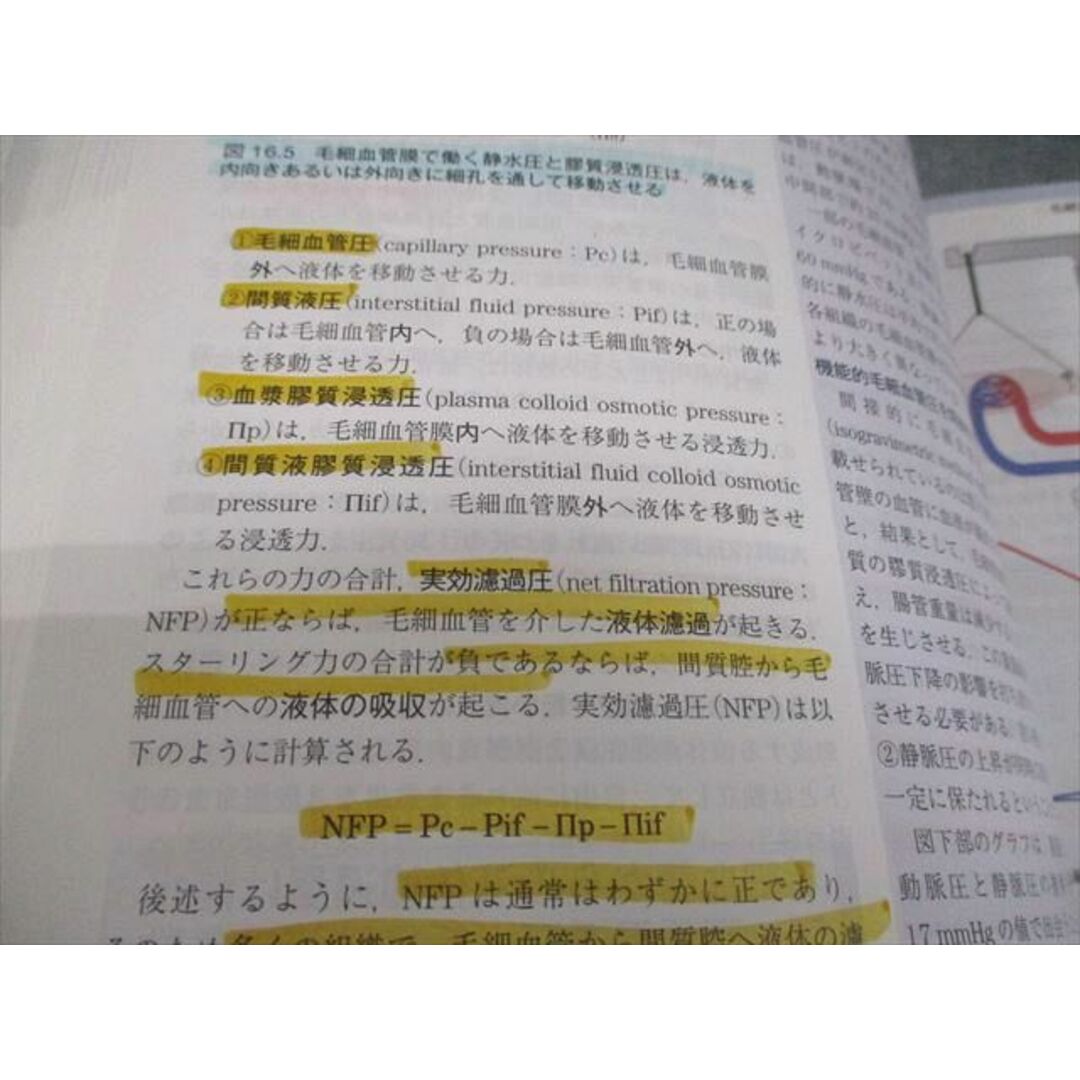 図 16.5 毛細血管膜で働く静水圧と膠質浸透圧は，液体を
内向きあるいは外向きに細孔を通して移動させる
①毛細血管圧(capillary pressure：Pc)は，毛細血管膜
外へ液体を移動させる力．
②間質液圧(interstitial fluid pressure：Pif)は，正の場
合は毛細血管内へ，負の場合は毛細血管外へ，液体
を移動させる力．
③血漿膠質浸透圧(plasma colloid osmotic pressure：
Πp)は，毛細血管膜内へ液体を移動させる浸透力．
④間質液膠質浸透圧(interstitial fluid colloid osmotic
pressure：Πif)は，毛細血管膜外へ液体を移動させ
る浸透力．
これらの力の合計，実効濾過圧(net filtration pressure：
NFP)が正ならば，毛細血管を介した液体濾過が起きる．
スターリング力の合計が負であるならば，間質腔から毛
細血管への液体の吸収が起こる．実効濾過圧(NFP)は以
下のように計算される．
NFP＝Pc−Pif−Πp−Πif
後述するように，NFPは通常はわずかに正であり，
そのため多くの組織で，毛細血管から間質腔へ液体の濾
は，動脈端で
中間部で約
一部の毛細血管
イクロピペット
60 mmHg である
的に静水圧は
各組織の毛細血管
より大きく異なって
機能的毛細血管圧を
間接的に毛細血管
(isogravimetric method)
載せられているのは
管壁の血管に血液が
と，結果として，毛細
質の膠質浸透圧によって
え，腸管重量は減少する
を生じさせる．この
脈圧下降の影響を
させる必要がある
②静脈圧の上昇が
一定に保たれるという
図下部のグラフは，
動脈圧と静脈圧の
17 mmHg の値で